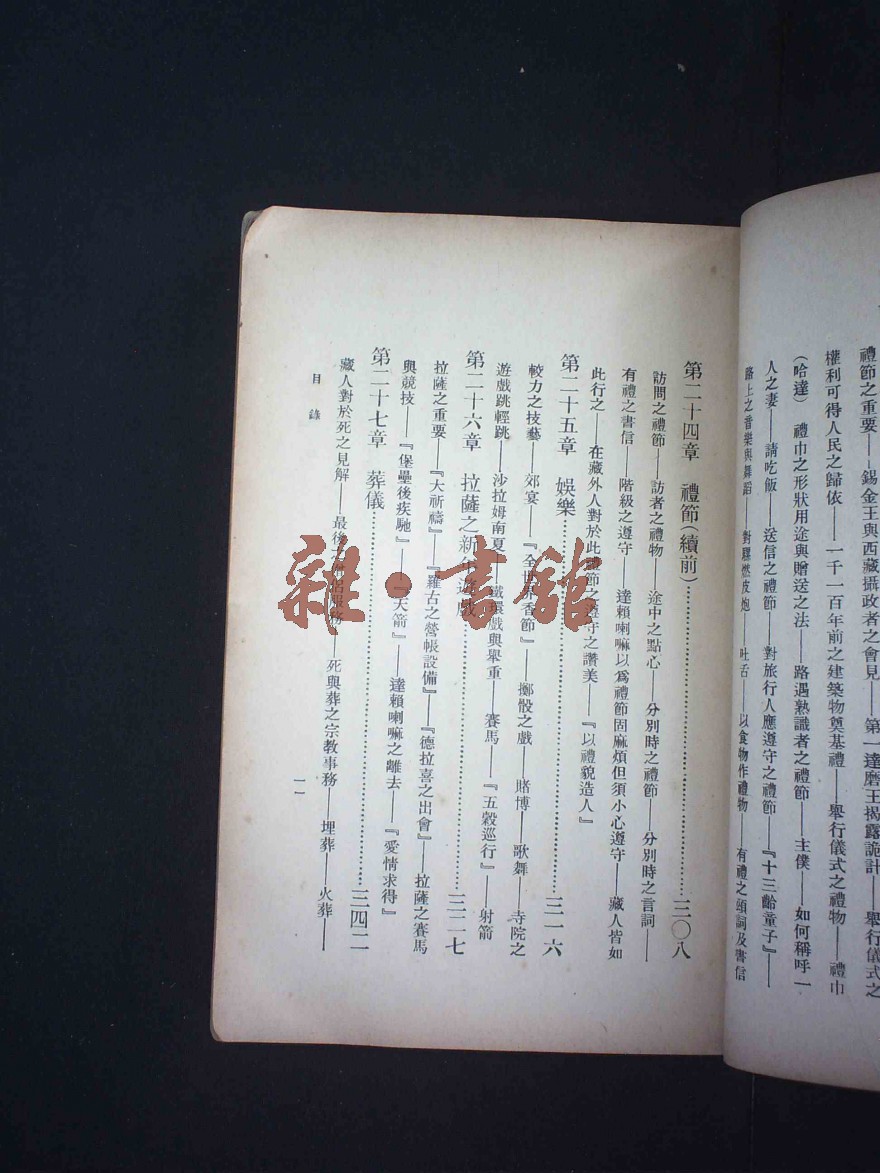 禮節之重要——錫金王與西藏攝政者之會見——第一達磨王揭露詭計——舉行儀式之
權利可得人民之歸依——一千一百年前之建築物奠基禮——舉行儀式之禮物——禮巾
(哈達) 禮巾之形狀用途與贈送之法——路遇熟識者之禮節——主僕——如何稱呼一
人之妻——請吃飯——送信之禮節——對旅行人應遵守之禮節——『十三齡童子』——
路上之音樂與舞蹈——對騾燃皮炮——吐舌——以食物作禮物——有禮之頭詞及書信
第二十四章 禮節(續前)……三〇八
訪問之禮節——訪者之禮物——途中之點心——分別時之禮節——分別時之言詞——
有禮之書信——階級之遵守——達賴喇嘛以爲禮節固麻煩但須小心遵守——藏人皆如
此行之——在藏外人對於此禮節之遵守之讚美——『以禮貌造人』
第二十五章 娛樂……三一六
較力之技藝——郊宴——『全世界香節』——擲骰之戲——賭博——歌舞——寺院之
遊戲跳輕跳——沙拉姆南夏——鐵環戲與舉重——賽馬——『五穀巡行』——射箭
第二十六章 拉薩之新年遊戲……三二七
拉薩之重要——『大祈禱』——『羅古之營帳設備』——『德拉喜之出會』——拉薩之賽馬
與競技——『堡壘後疾馳』——『天箭』——達賴喇嘛之離去——『愛情求得』
第二十七章 葬儀……三四二
藏人對於死之見解——最後之服務——死與葬之宗教事務——埋葬——火葬——
目錄
一一
雜·書館